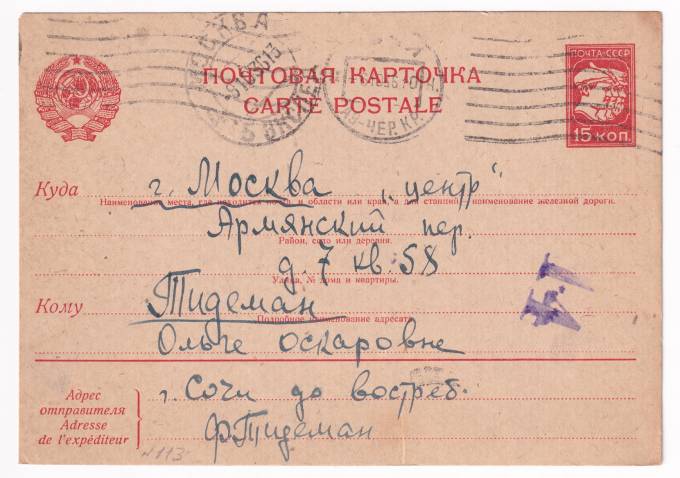 МОСКВА
ПОЧТА·СССР
ПОЧТОВАЯ КАРТОЧКА
CARTE POSTALE
15 КОП.
Куда г. Москва „центр"
Наименование места, где находится почта, и области или края, а для станций наименование железной дороги.
Армянский пер.
Район, село или деревня.
д. 7 кв. 58
Улица, № дома и квартиры.
Кому Тидеман
Подробное наименование адресата.
Ольге Оскаровне
Адрес отправителя
Adresse de l'expéditeur
г. Сочи до востреб.
Ф. Тидеман
N 113